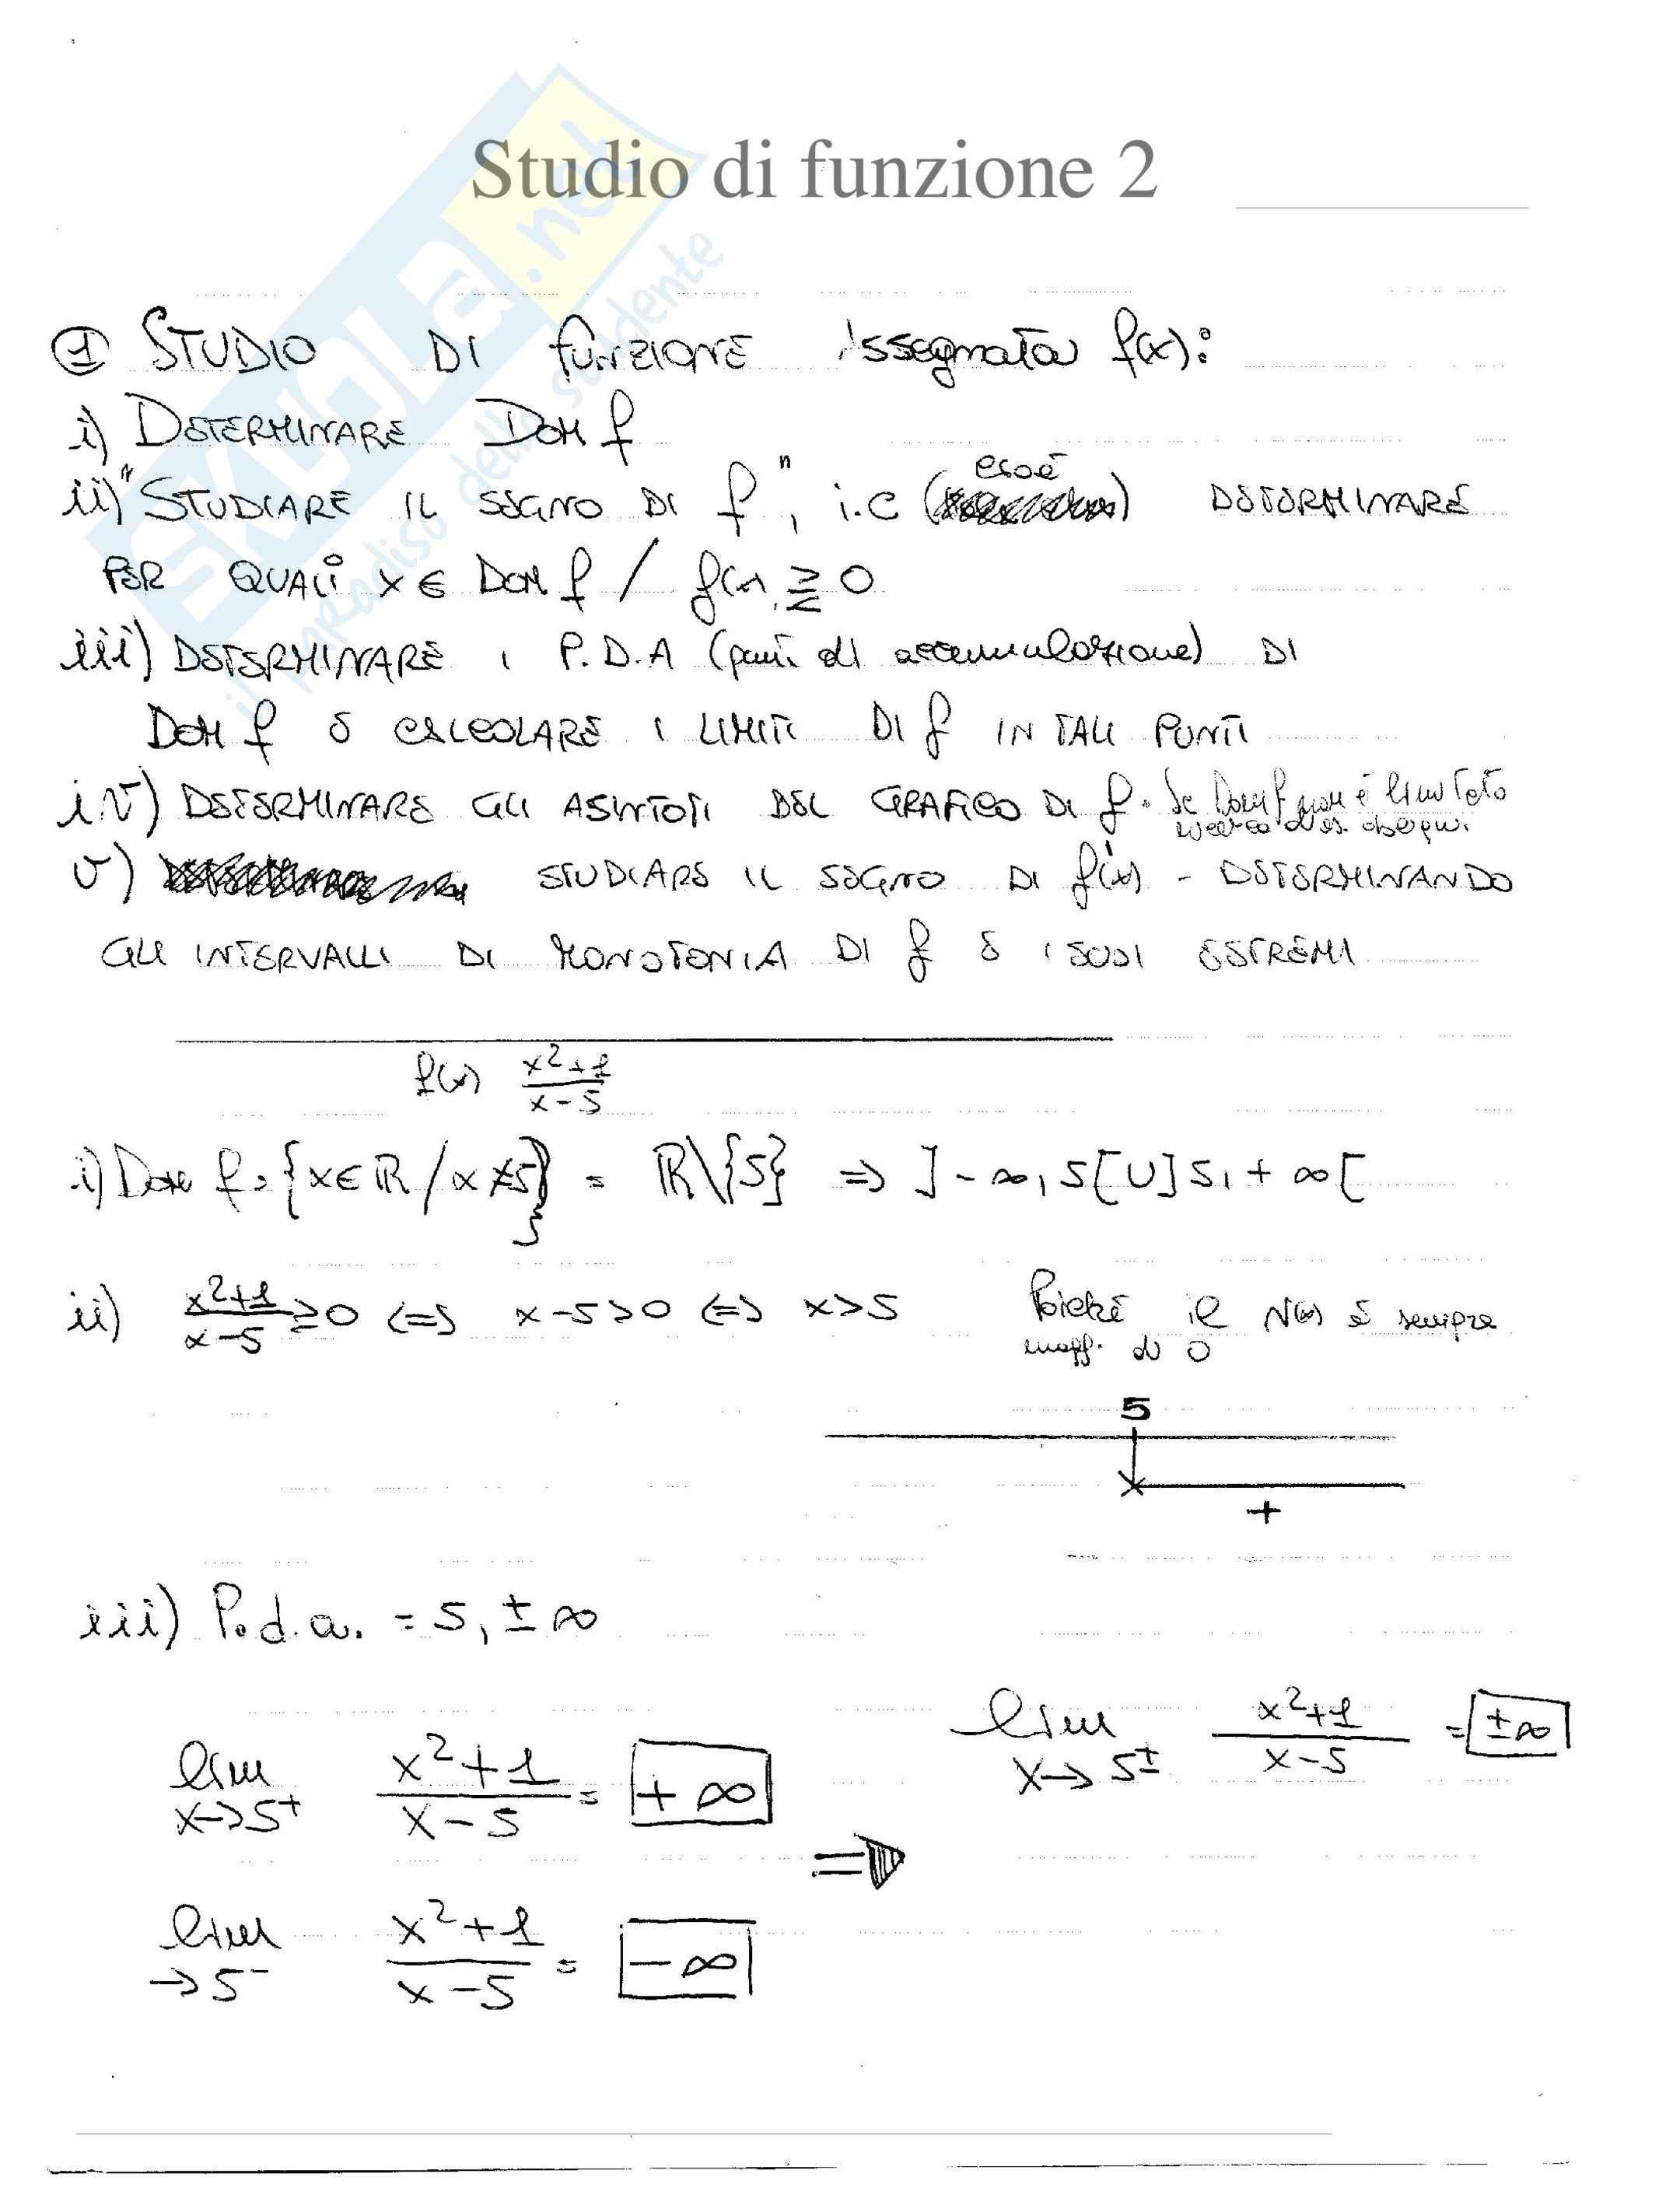 Studio di funzione 2
SKUOLA.net
il paradiso dello studente
① STUDIO DI FUNZIONE Assegnata f(x):
i) DETERMINARE DOM f
ii) "STUDIARE IL SEGNO DI f", i.e (cioè) DETERMINARE
PER QUALI x ∈ DOM f / f(x) ⋛ 0
iii) DETERMINARE I P.D.A (punti di accumulazione) DI
DOM f E CALCOLARE I LIMITI DI f IN TALI PUNTI
iv) DETERMINARE GLI ASINTOTI DEL GRAFICO DI f. Se Dom f non è limitato
v) STUDIARE IL SEGNO DI f'(x) - DETERMINANDO
GLI INTERVALLI DI MONOTONIA DI f E I SUOI ESTREMI
f(x) \frac{x²+1}{x-5}
i) Dom f = {x∈ℝ / x≠5} = ℝ\{5} ⇒ ]-∞, 5[ U ]5, +∞[
ii) \frac{x²+1}{x-5} ≥ 0 <=> x-5>0 <=> x>5 Poiché il N(x) è sempre
magg. di 0
5
+
iii) P.d.a. = 5, ±∞
lim x→5⁺ \frac{x²+1}{x-5} = +∞
⇒ lim x→5± \frac{x²+1}{x-5} = ±∞
lim →5⁻ \frac{x²+1}{x-5} = -∞